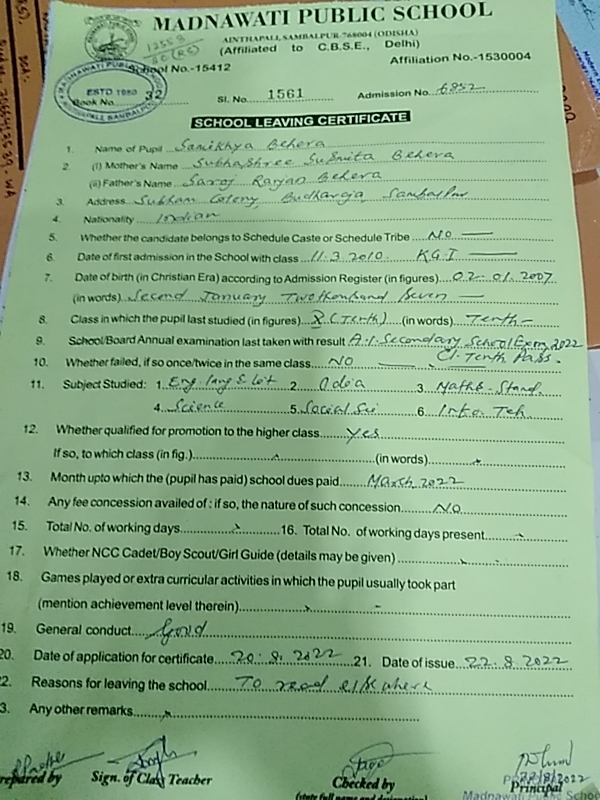 MADNAWATI PUBLIC SCHOOL
AINTHAPALI, SAMBALPUR-768004 (ODISHA)
(Affiliated to C.B.S.E., Delhi)
School No.-15412 Affiliation No.-1530004
ESTD 1980
Book No. 32 Sl. No. 1561 Admission No. 6852
SCHOOL LEAVING CERTIFICATE
1. Name of Pupil Samikhya Behera
2. (i) Mother's Name Subhashree Susmita Behera
(ii) Father's Name Saroj Ranjan Behera
3. Address Subham Colony, Budharaja, Sambalpur
4. Nationality Indian
5. Whether the candidate belongs to Schedule Caste or Schedule Tribe NO
6. Date of first admission in the School with class 11.3.2010. K.G.I
7. Date of birth (in Christian Era) according to Admission Register (in figures) 02.01.2007
(in words) Second January Twothousand Seven
8. Class in which the pupil last studied (in figures) X (Tenth) (in words) Tenth
9. School/Board Annual examination last taken with result A.I. Secondary School Exam, 2022
Cl. Tenth Pass.
10. Whether failed, if so once/twice in the same class NO
11. Subject Studied: 1. Eng. lang & Lit 2. Odia 3. Maths-Stand.
4. Science 5. Social Sci 6. Info. Teh
12. Whether qualified for promotion to the higher class yes
If so, to which class (in fig.) (in words)
13. Month upto which the (pupil has paid) school dues paid March 2022
14. Any fee concession availed of : if so, the nature of such concession NO
15. Total No. of working days 16. Total No. of working days present
17. Whether NCC Cadet/Boy Scout/Girl Guide (details may be given)
18. Games played or extra curricular activities in which the pupil usually took part
(mention achievement level therein)
19. General conduct Good
20. Date of application for certificate 20.8.2022 21. Date of issue 22.8.2022
2. Reasons for leaving the school To read elsewhere
3. Any other remarks
22/8/2022
repared by Sign. of Class Teacher Checked by Principal
(state full name and designation) Madnawati Public School